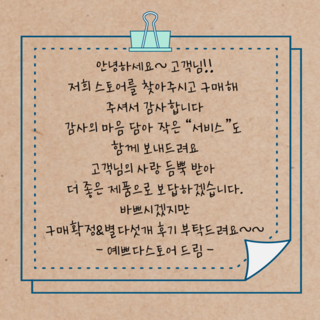 안녕하세요~ 고객님!!
저희 스토어를 찾아주시고 구매해
주셔서 감사합니다
감사의 마음 담아 작은 “서비스”도
함께 보내드려요
고객님의 사랑 듬뿍 받아
더 좋은 제품으로 보답하겠습니다.
바쁘시겠지만
구매확정&별다섯개 후기 부탁드려요~~
- 예쁘다스토어 드림 -